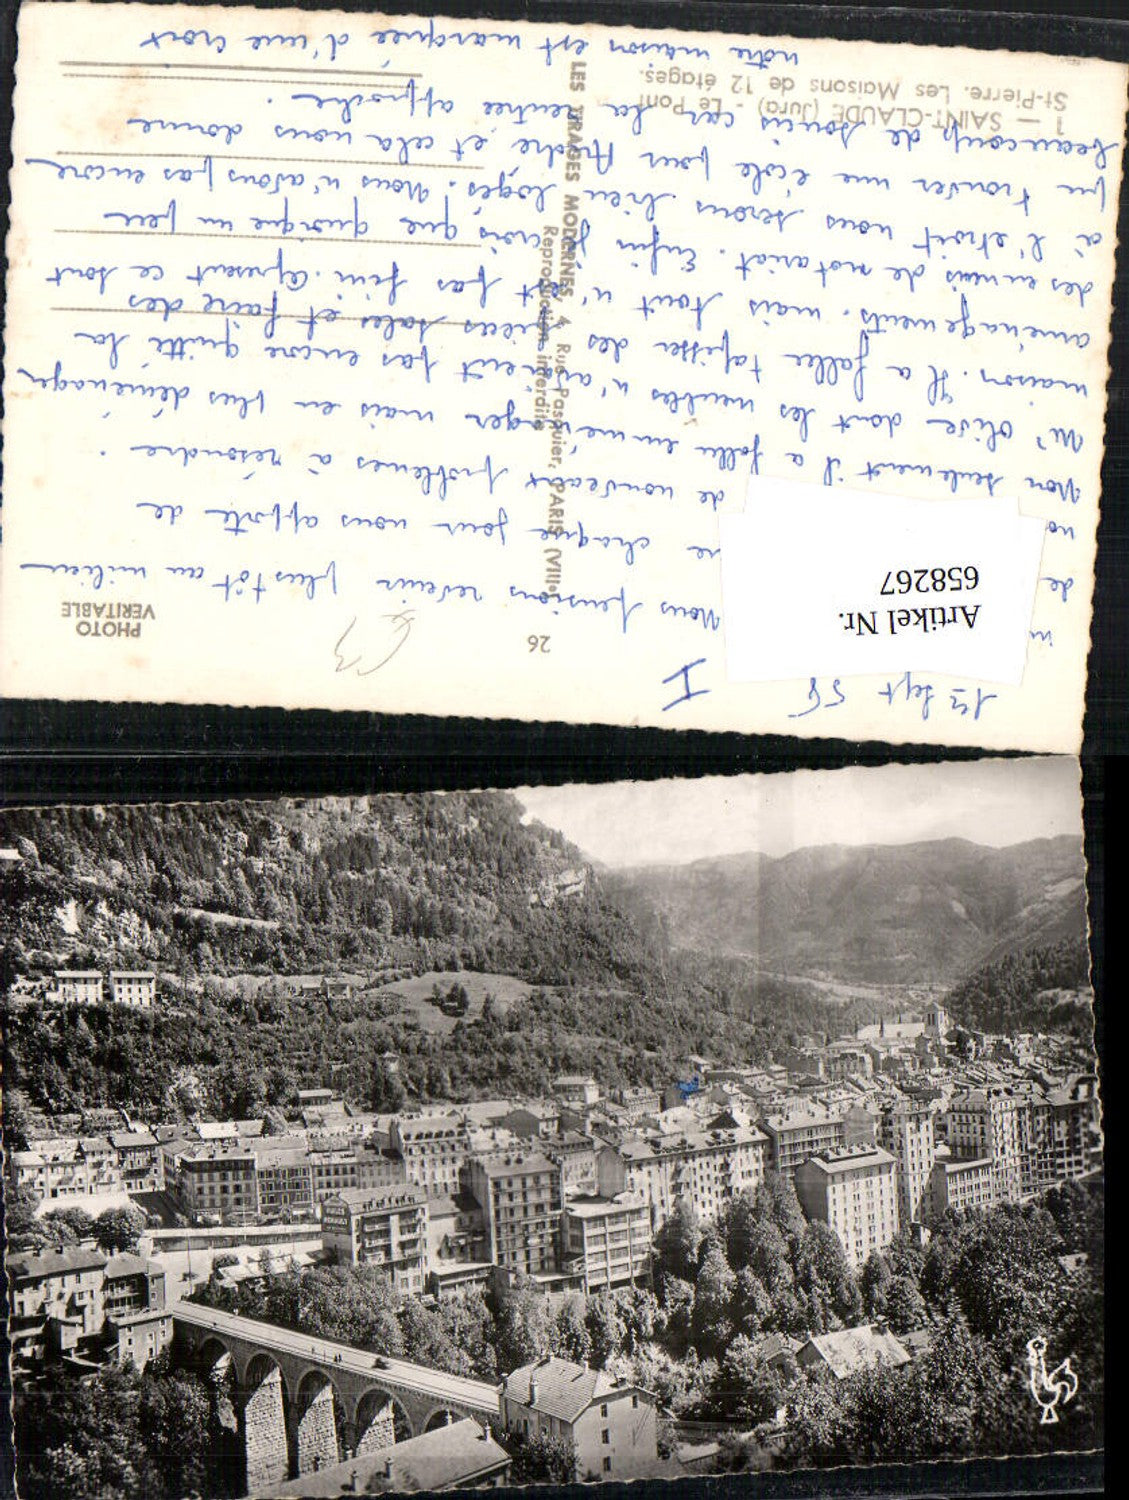 1 — SAINT-CLAUDE (Jura) - Le Pont
St-Pierre. Les Maisons de 12 étages.
LES TIRAGES MODERNES, 4, Rue Pasquier, PARIS (VIIIe
Reproduction interdite
PHOTO
VERITABLE
26
Artikel Nr.
658267
13 Sept 58 I
Nous pensions revenir plus tôt au milieu
de
chaque jour nous apporte de
de nouveaux problèmes à résoudre.
Non seulement il a fallu emménager mais en plus déménager
Mr Olive dont les meubles n'avaient pas encore quitté la
maison. Il a fallu tapisser des pièces sales et faire des
aménagements. mais tout n'est pas fini. Apresent ce sont
des ennuis de notariat. Enfin je crois que quoique un peu
à l'etroit nous serons bien logés. Nous n'avons pas encore
pu trouver une école pour André, et cela nous donne
beaucoup de soucis car la rentrée approche.
notre maison est marquée d'une croix